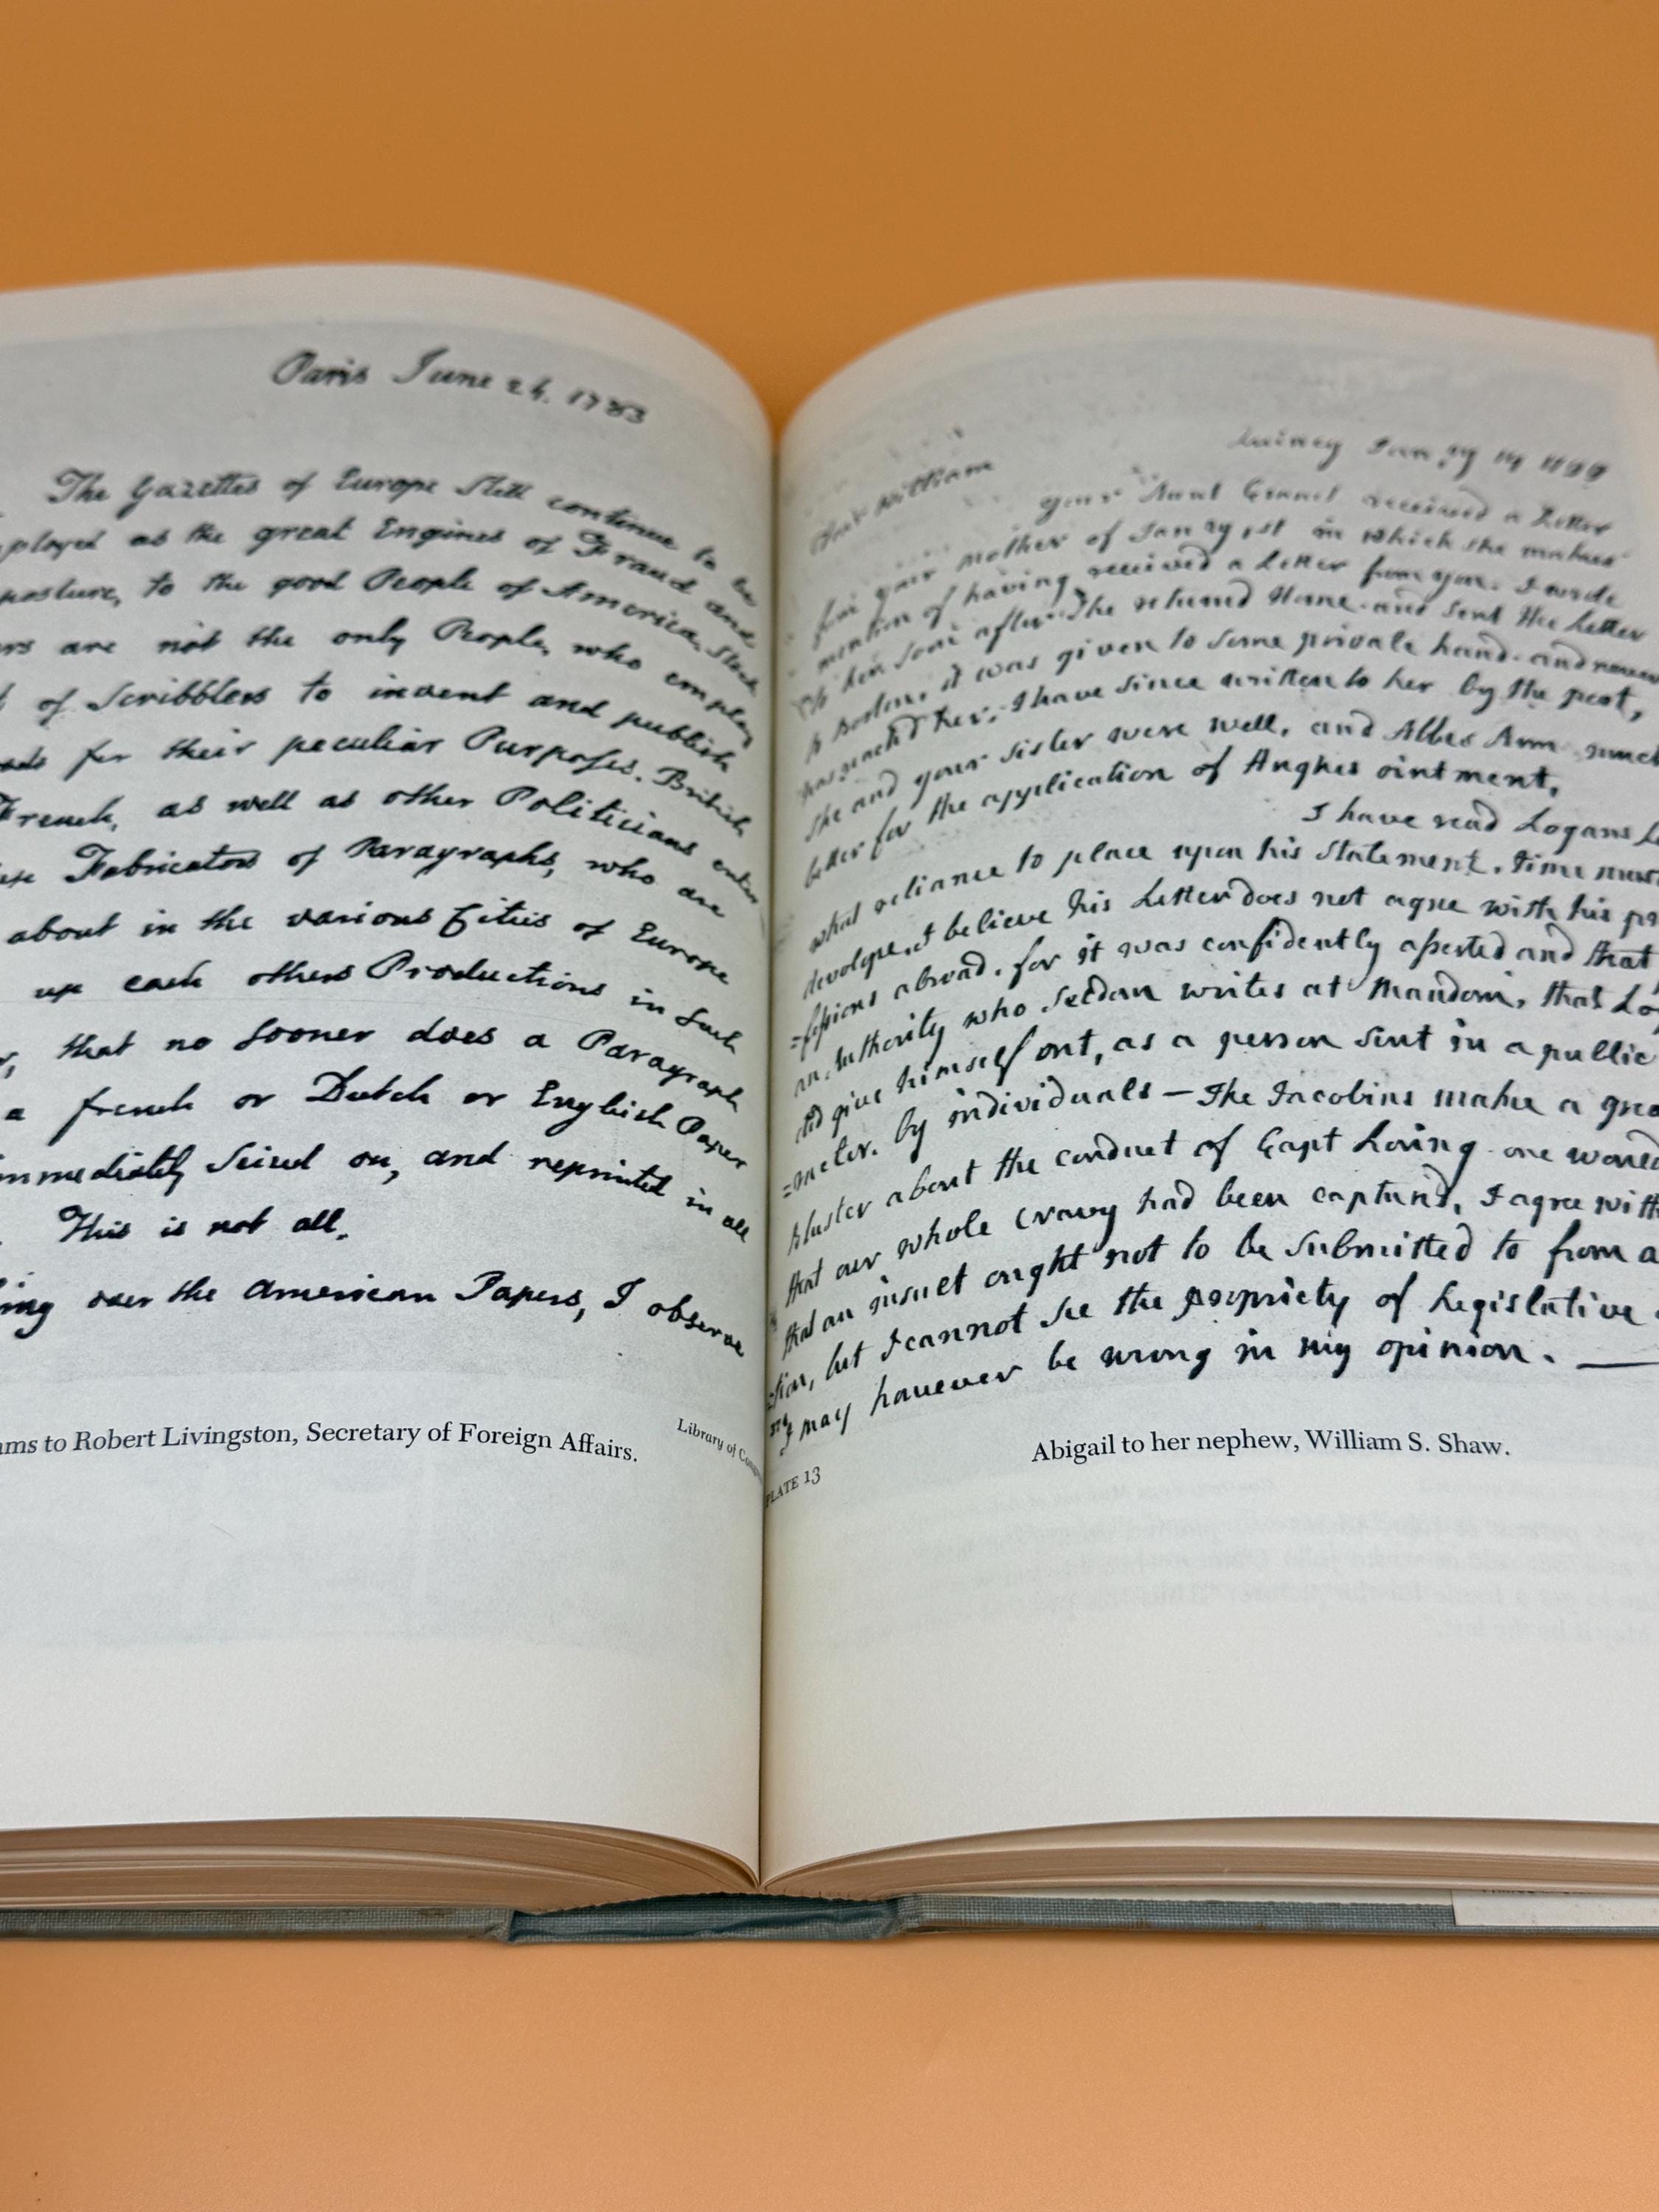 Paris June 24. 1783
The Gazettes of Europe Still continue to be
ployed as the great Engines of Fraud and
posture, to the good People of America. Stock
rs are not the only People, who employ
of Scribblers to invent and publish
for their peculiar Purposes. British
French, as well as other Politicians enter
Fabricators of Paragraphs, who are
about in the various Cities of Europe
up each others Productions in Such
that no Sooner does a Paragraph
a french or Dutch or English Paper
immediately Seized on, and reprinted in all
This is not all.
ing over the American Papers, I observe
ams to Robert Livingston, Secretary of Foreign Affairs.
Library of Cong
Quincy Jan ry 14 1799
Dear William
your Aunt received a Letter
from your mother of Jan ry 1st in which she makes
mention of having received a Letter from you. I wrote
soon after She returned Home and sent the Letter
to Boston, it was given to some private hand and never
has reachd her. I have since written to her by the post,
She and your Sister were well, and Abbes Arm much
better for the application of ointment,
I have read Logans Le
what reliance to place upon his Statement. time must
devolope. I believe his Letter does not agree with his pro
=fessions abroad. for it was confidently asserted and that
an Authority who Seldom writes at Random, that Lo
did give himself out, as a person sent in a public
=meter. by individuals — The Jacobins make a grea
bluster about the conduct of Capt Loring one would
that our whole Navy had been captured, I agree with
that an insult ought not to be Submitted to from a
=tion, but I cannot see the propriety of Legislative
I may however be wrong in my opinion. —
PLATE 13
Abigail to her nephew, William S. Shaw.